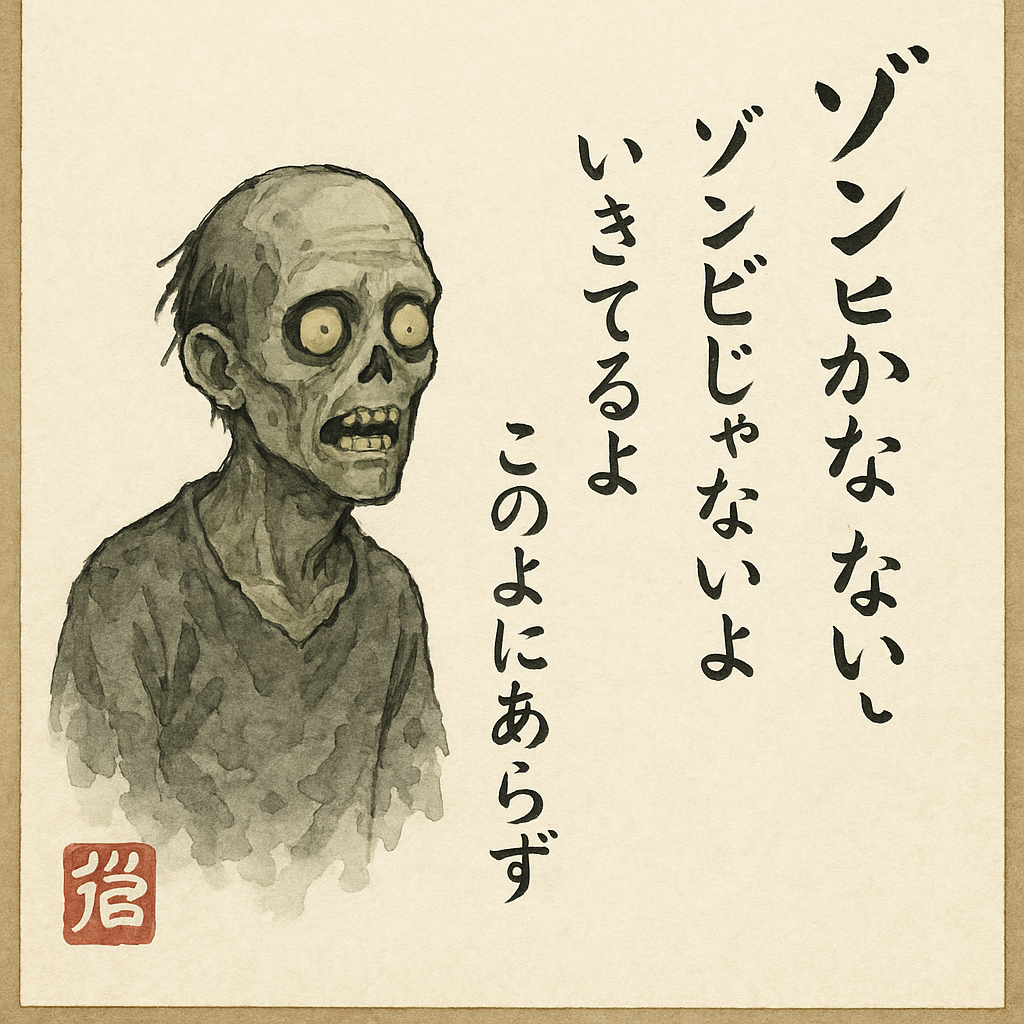 ゾンヒかなない
ゾンビじゃないよ
いきてるよ
このよにあらず